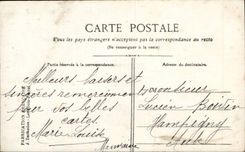 CARTE POSTALE
Tous les pays étrangers n'acceptent pas la correspondance au recto
(Se renseigner à la poste)
Partie réservée à la correspondance.
Adresse du destinataire.
Meilleurs baisers et
sincères remerciements
pour vos belles
cartes
Marie Louise
Monsieur
Lucien
Hampigny
Aube
FABRICATION FRANÇAISE